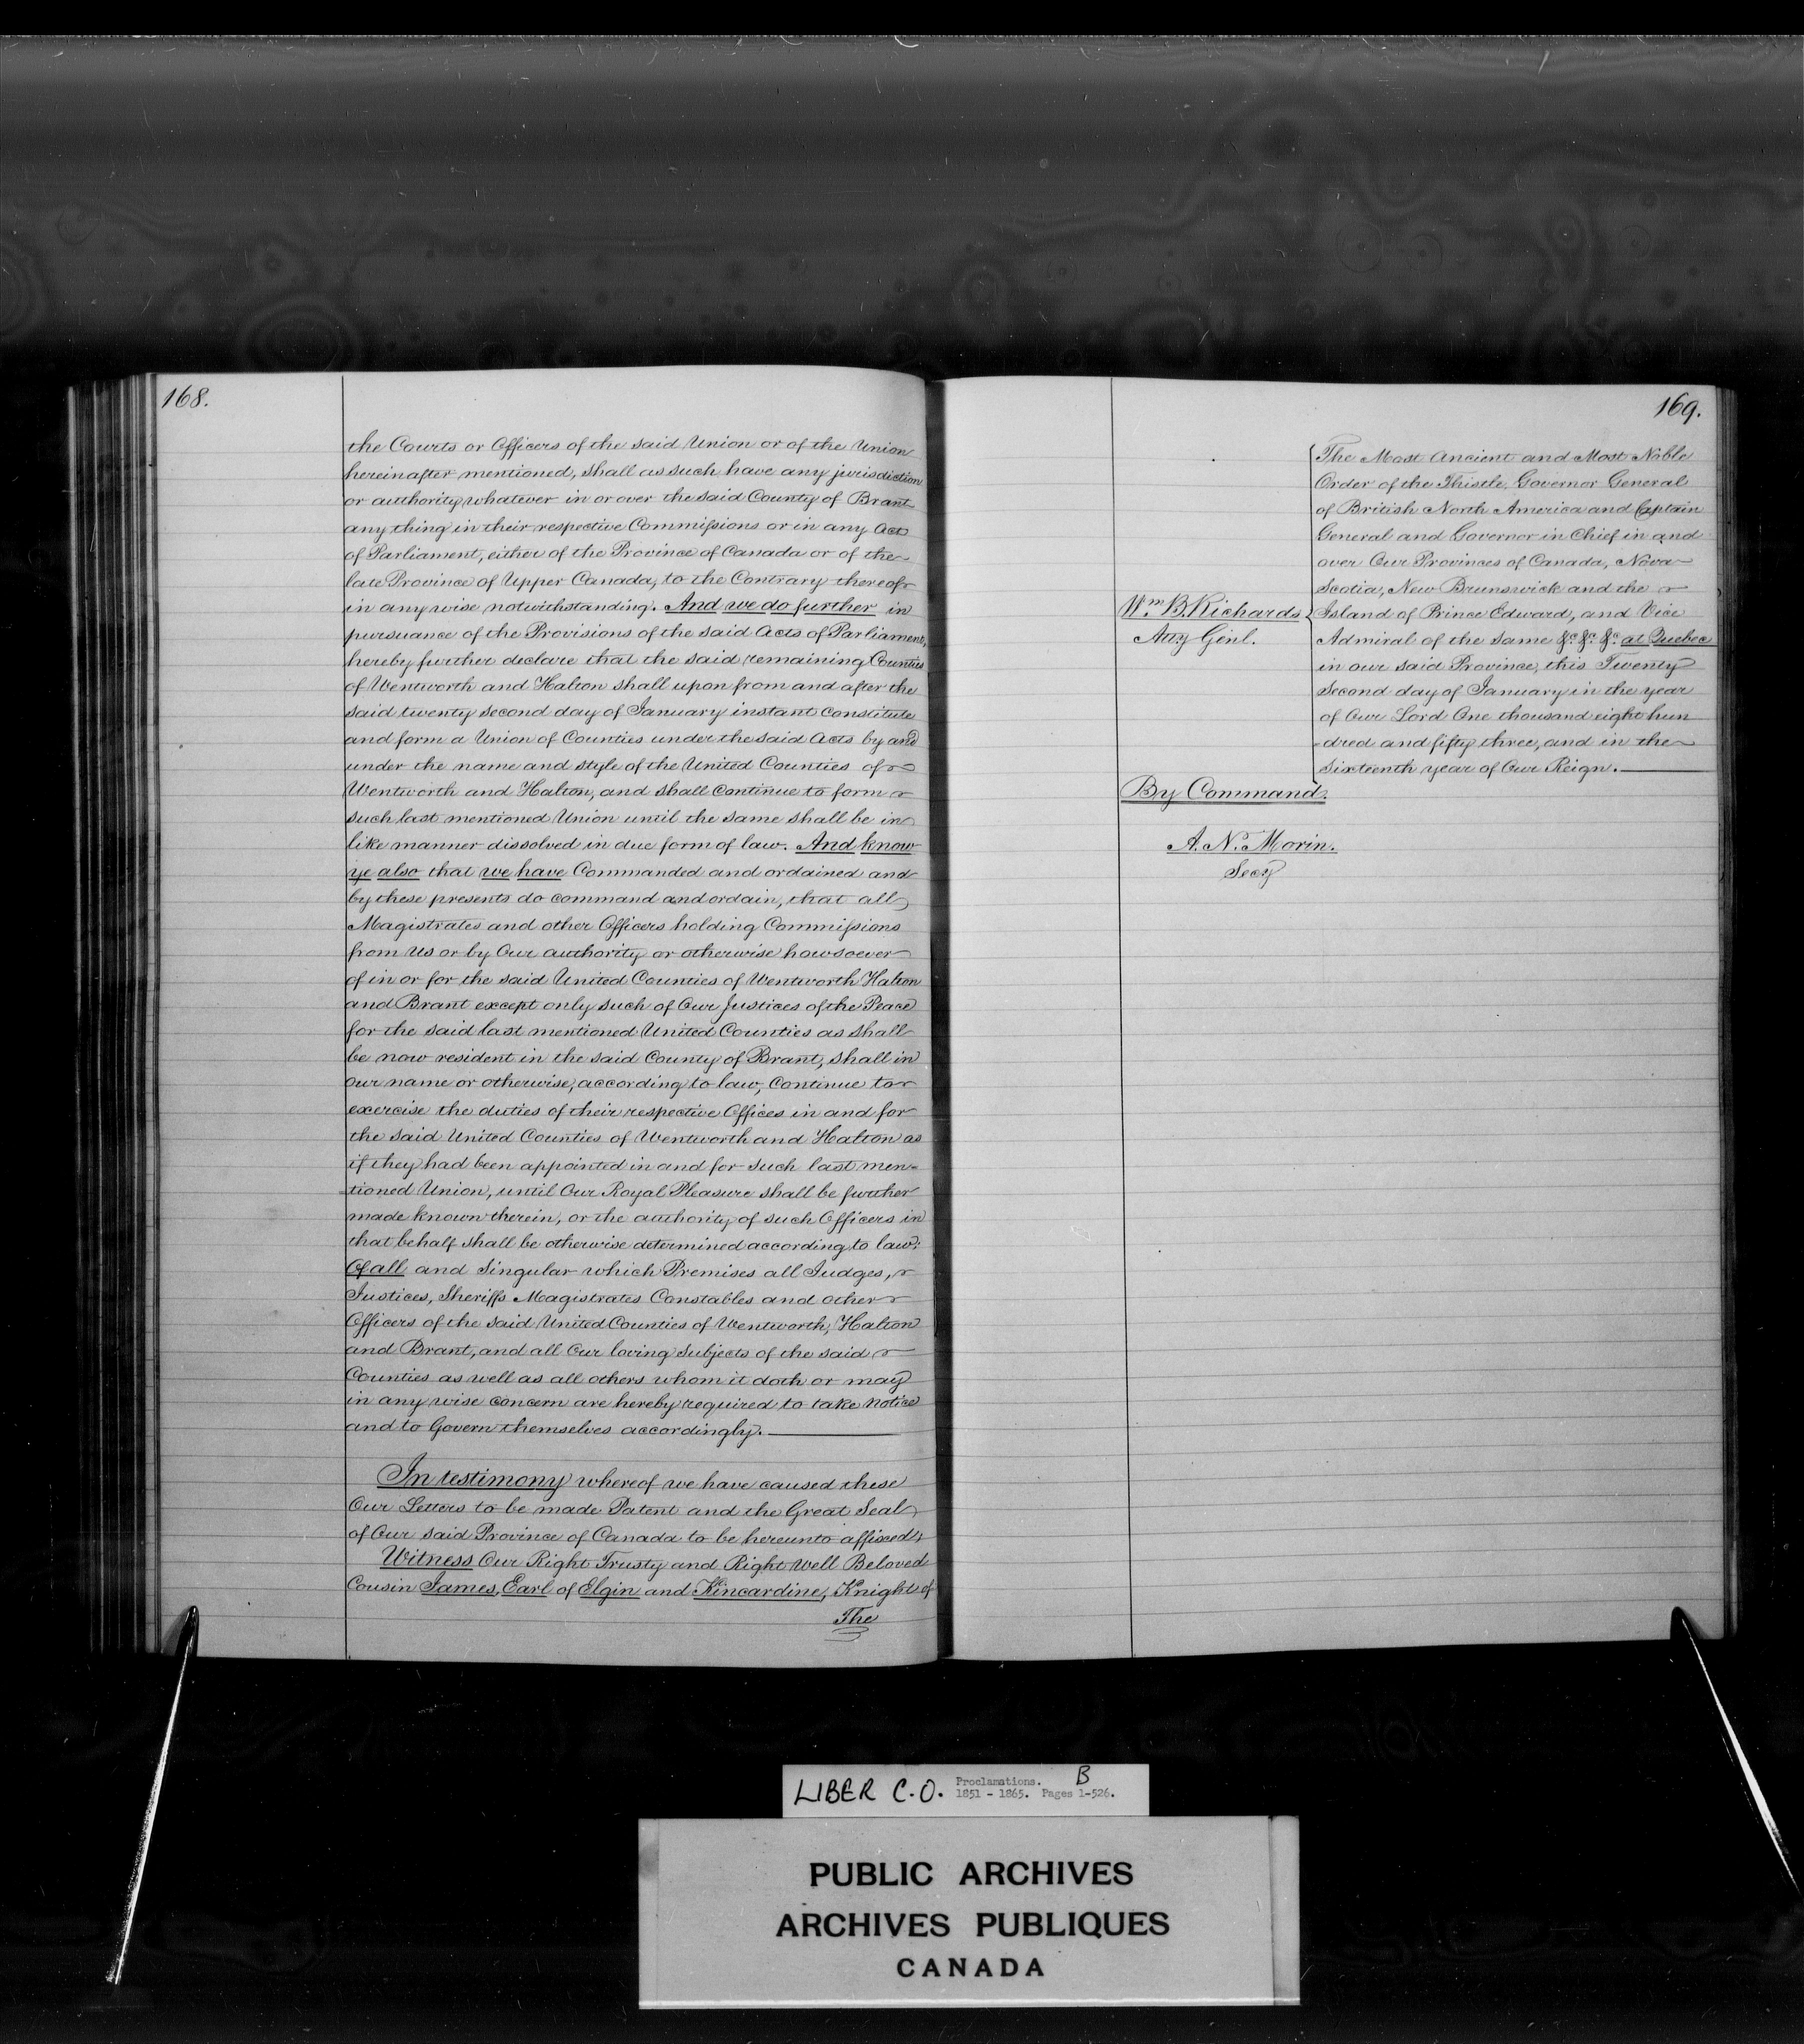 168.
the Courts or Officers of the said Union or of the Union
hereinafter mentioned, shall as such have any jurisdiction
or authority whatever in or over the said County of Brant
any thing in their respective Commissions or in any Acts
of Parliament, either of the Province of Canada or of the
late Province of Upper Canada, to the Contrary thereof
in any wise notwithstanding. And we do further in
pursuance of the Provisions of the said Acts of Parliament,
hereby further declare that the said remaining Counties
of Wentworth and Halton shall upon from and after the
said twenty second day of January instant constitute
and form a Union of Counties under the said Acts by and
under the name and style of the United Counties of
Wentworth and Halton, and shall continue to form
such last mentioned Union until the same shall be in
like manner dissolved in due form of law. And know
ye also that we have Commanded and ordained and
by these presents do command and ordain, that all
Magistrates and other Officers holding Commissions
from us or by Our authority or otherwise howsoever
of in or for the said United Counties of Wentworth Halton
and Brant except only such of Our Justices of the Peace
for the said last mentioned United Counties as shall
be now resident in the said County of Brant, shall in
our name or otherwise, according to law, Continue to
exercise the duties of their respective Offices in and for
the said United Counties of Wentworth and Halton as
if they had been appointed in and for such last men=
=tioned Union, until Our Royal Pleasure shall be further
made known therein, or the authority of such Officers in
that behalf shall be otherwise determined according to law:
Of all and Singular which Premises all Judges,
Justices, Sheriffs Magistrates Constables and other
Officers of the said United Counties of Wentworth, Halton
and Brant, and all Our loving Subjects of the said
Counties as well as all others whom it doth or may
in any wise concern are hereby required to take notice
and to Govern themselves accordingly.
In testimony whereof we have caused these
Our Letters to be made Patent and the Great Seal
of Our said Province of Canada to be hereunto affixed:
Witness Our Right Trusty and Right Well Beloved
Cousin James, Earl of Elgin and Kincardine, Knight of
The
169.
The Most Ancient and Most Noble
Order of the Thistle, Governor General
of British North America and Captain
General and Governor in Chief in and
over Our Provinces of Canada, Nova
Scotia, New Brunswick and the
Island of Prince Edward, and Vice
Admiral of the same &c. &c. &c. at Quebec
in our said Province, this Twenty
Second day of January in the year
of Our Lord One thousand eight hun
-dred and fifty three, and in the
Sixteenth year of Our Reign.
Wm. B. Richards
Atty Genl.
By Command.
A. N. Morin.
Secy
LIBER C.O. Proclamations. B
1851 - 1865. Pages 1-526.
PUBLIC ARCHIVES
ARCHIVES PUBLIQUES
CANADA